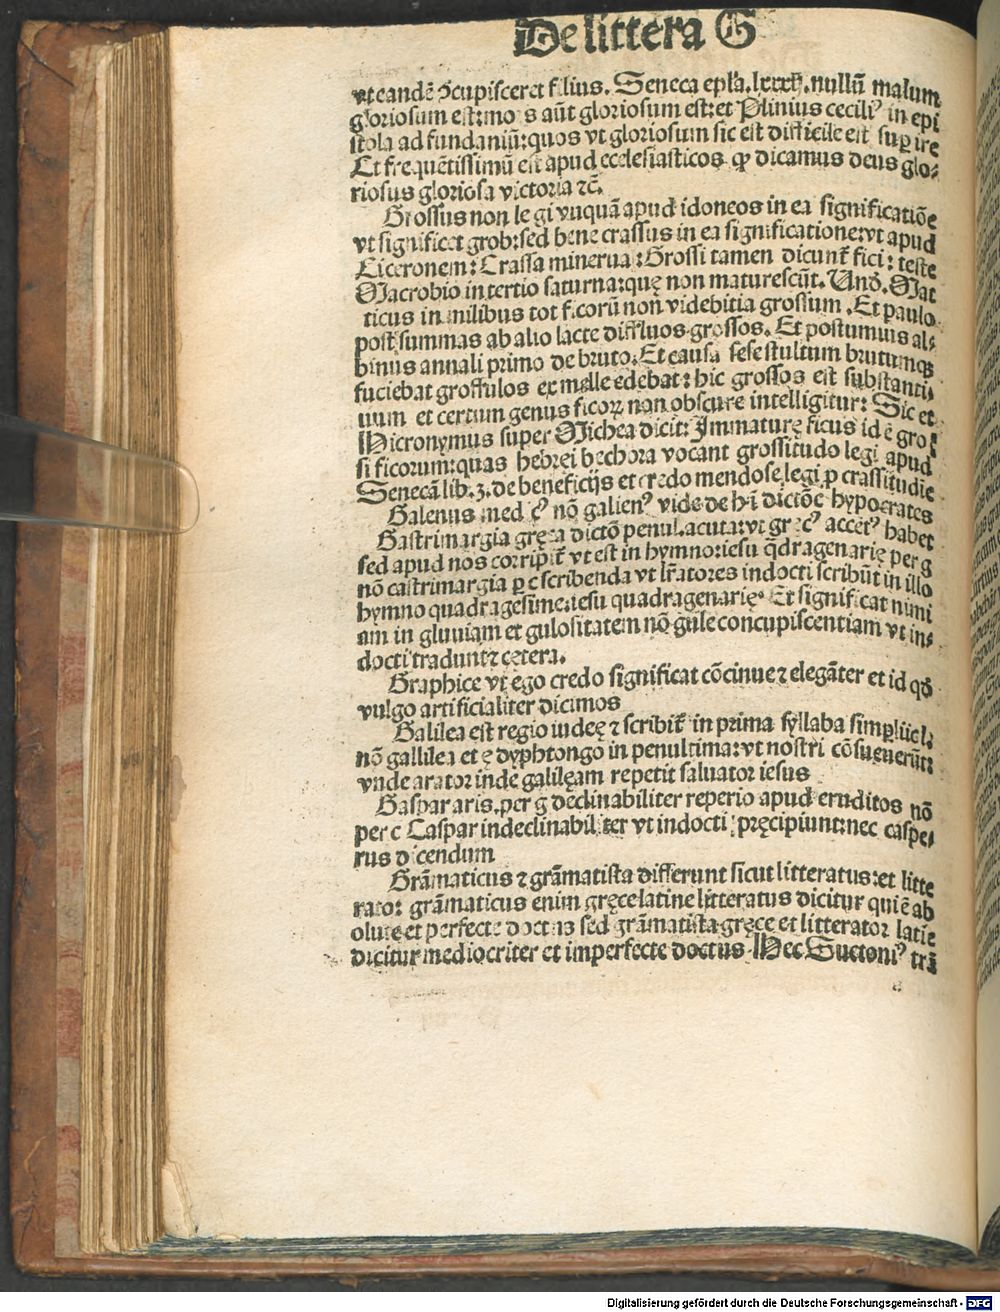 De littera G
vt eandē ↄcupisceret filius. Seneca epl'a. lxxxij. nullū malum
gloriosum est: mo s aūt gloriosum est: et Plinius cecili⁹ in epi
stola ad fundaniū: quos vt gloriosum sic est difficile est supire
Et frequētissimū est apud ecclesiasticos ꝙ dicamus deus glo-
riosus gloriosa victoria ⁊c̄.
Grossus non legi vnquā apud idoneos in ea significatiōe
vt significet grob: sed bene crassus in ea significatione: vt apud
Ciceronem: Crassa minerua: Grossi tamen dicunt̄ fici: teste
Macrobio in tertio saturna: quę non maturescūt. Vnd̄. Mat
ticus in milibus tot ficorū non videbitia grossum. Et paulo
post summas ab alio lacte diffluos grossos. Et postumius al-
binus annali primo de bruto. Et causa sese stultum brutumqꝫ
faciebat grossulos ex melle edebat: hic grossos est substanti-
uum et certum genus ficoꝝ non obscure intelligitur: Sic et
Hieronymus super Michea dicit: Immaturę ficus idē gro-
si ficorum: quas hebrei bechora vocant grossitudo legi apud
Senecā lib. 3. de beneficijs et credo mendose legi ꝓ crassitudie
Galenus med c⁹ nō galien⁹ vide de hi dictōe hypocrates
Gastrimargia gręca dictō penul. acuta: vt grec⁹ accēt⁹ habet
sed apud nos corripit̄ vt est in hymno: iesu q̄dragenarię per g
nō castrimargia ꝑ c scribenda vt lr̄atores indocti scribūt in illo
hymno quadragesime: iesu quadragenarię. Et significat nimi
am in gluuiam et gulositatem nō gule concupiscentiam vt in-
docti tradunt ⁊ cętera.
Graphice vt ego credo significat cōcinue ⁊ elegāter et id qd̄
vulgo artificialiter dicimos
Galilea est regio iudeę ⁊ scribit̄ in prima syllaba simplici l:
nō gallilea et ę dyphtongo in penultima: vt nostri cōsueuerūt:
vnde arator inde galilęam repetit saluator iesus
Gaspar aris. per g declinabiliter reperio apud eruditos nō
per c Caspar indeclinabiliter vt indocti pręcipiunt: nec caspe-
rus dicendum
Grāmaticus ⁊ grāmatista differunt sicut litteratus: et litte
rator grāmaticus enim gręce latine litteratus dicitur qui ē ab
olute et perfecte doctus sed grāmatista gręce et litterator latie
dicitur mediocriter et imperfecte doctus Hec Suetoni⁹ trā
Digitalisierung gefördert durch die Deutsche Forschungsgemeinschaft - DFG